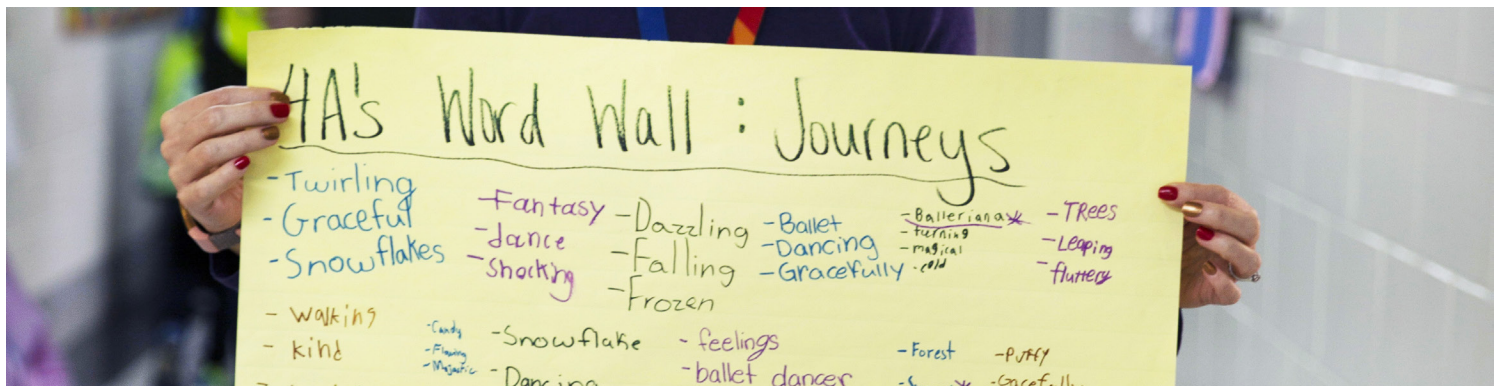 4A's Word Wall : Journeys
-Twirling
-Graceful
-Snowflakes
-Fantasy
-dance
-Shocking
-Dazzling
-Falling
-Frozen
-Ballet
-Dancing
-Gracefully
-Balleriana
-turning
-magical
-cold
-TRees
-Leaping
-fluttery
- Walking
- kind
-Candy
-Flowing
-Majastic
-Snowflake
-Dancing
- feelings
-ballet dancer
-Forest
-Puffy
-Gacefully